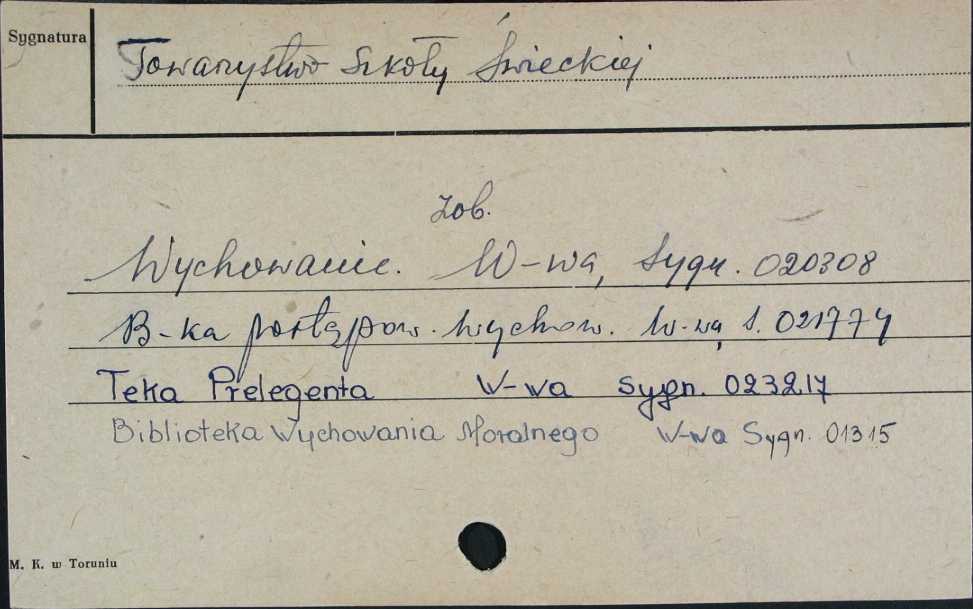 Sygnatura
Towarzystwo Szkoły Świeckiej
zob.
Wychowanie. W-wa, Sygn. 020308
B-ka postępow. wychow. W-wa, S. 021774
Teka Prelegenta W-wa sygn. 023217
Biblioteka Wychowania Moralnego W-wa Sygn. 01315
M. K. w Toruniu